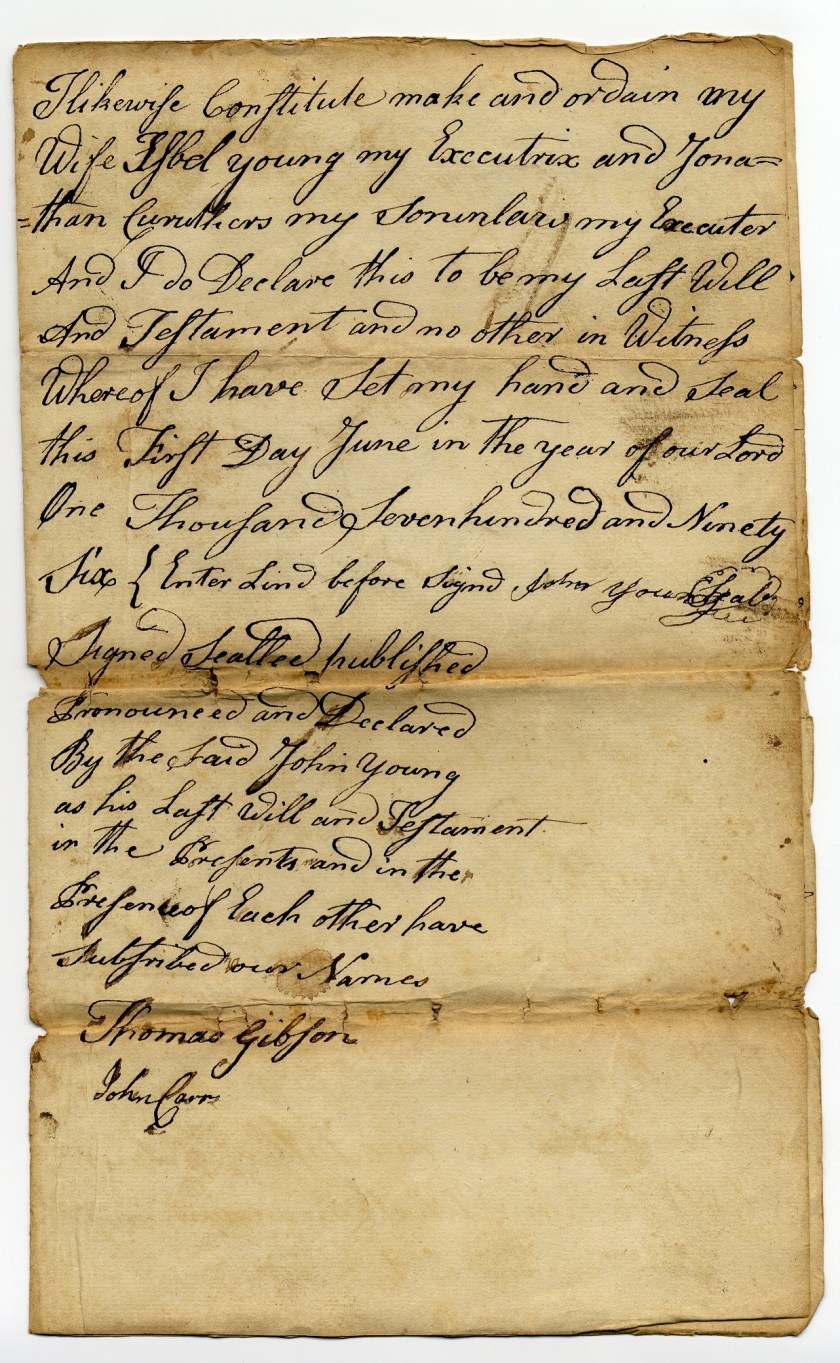 I likewise Constitute make and ordain my
Wife Isbel young my Executrix and Jona=
=than Curuthers my Soninlaw my Executer
And I do Declare this to be my Last Will
And Testament and no other in Witness
Whereof I have Set my hand and Seal
this First Day June in the year of our Lord
One Thousand Sevenhundred and Ninety
Six { Enter Lind before Signd John young Seal
Signed Sealled published
Pronounced and Declared
By the Said John Young
as his Last Will and Testament
in the Presents and in the
Presence of Each other have
Subsribed our Names
Thomas Gibson
John Carr